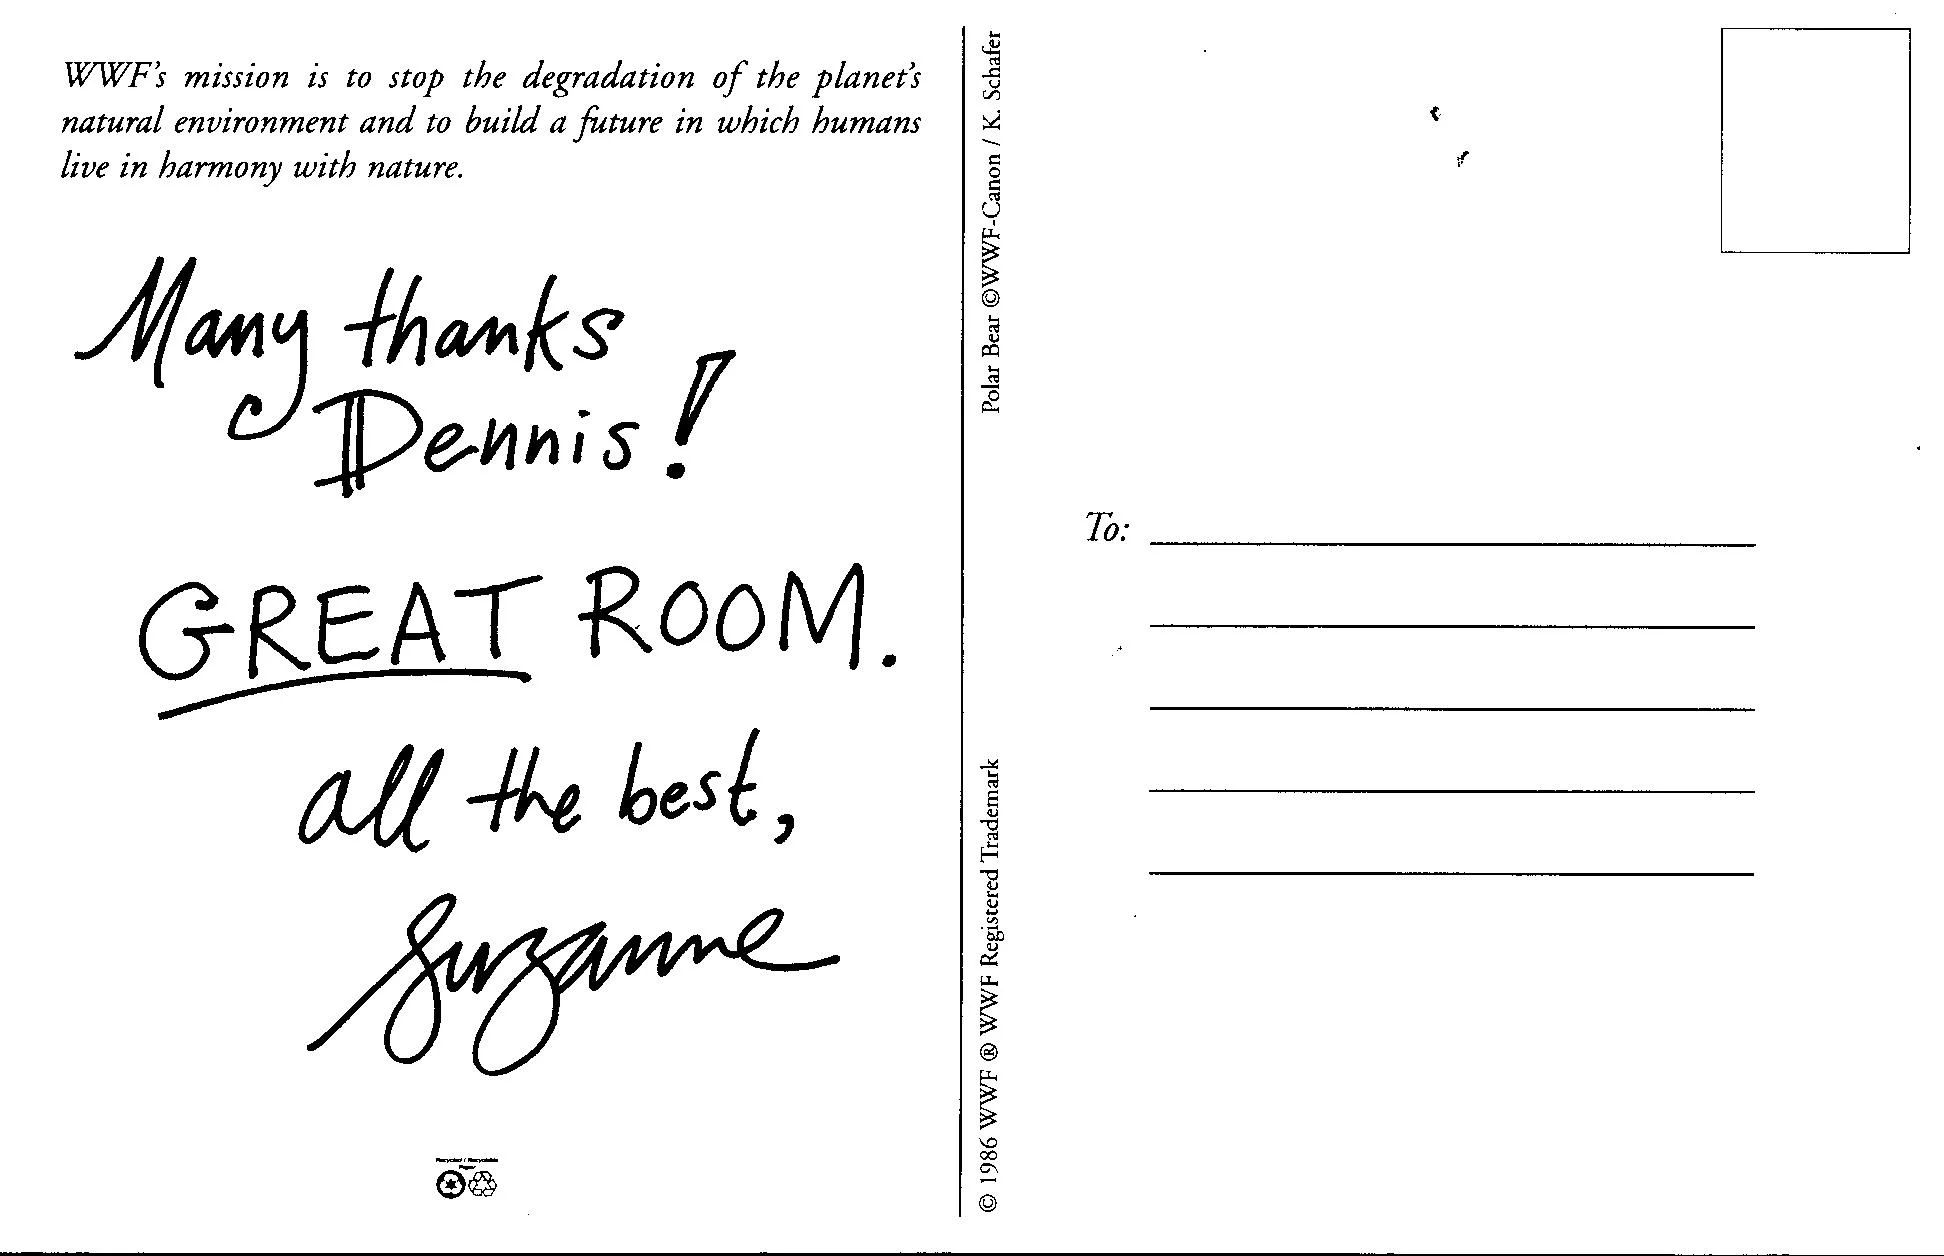 WWF's mission is to stop the degradation of the planet's
natural environment and to build a future in which humans
live in harmony with nature.
Many thanks
Dennis!
GREAT ROOM.
all the best,
Suzanne
Recycled / Recyclable
Paper
Polar Bear ©WWF-Canon / K. Schafer
© 1986 WWF ® WWF Registered Trademark
To: